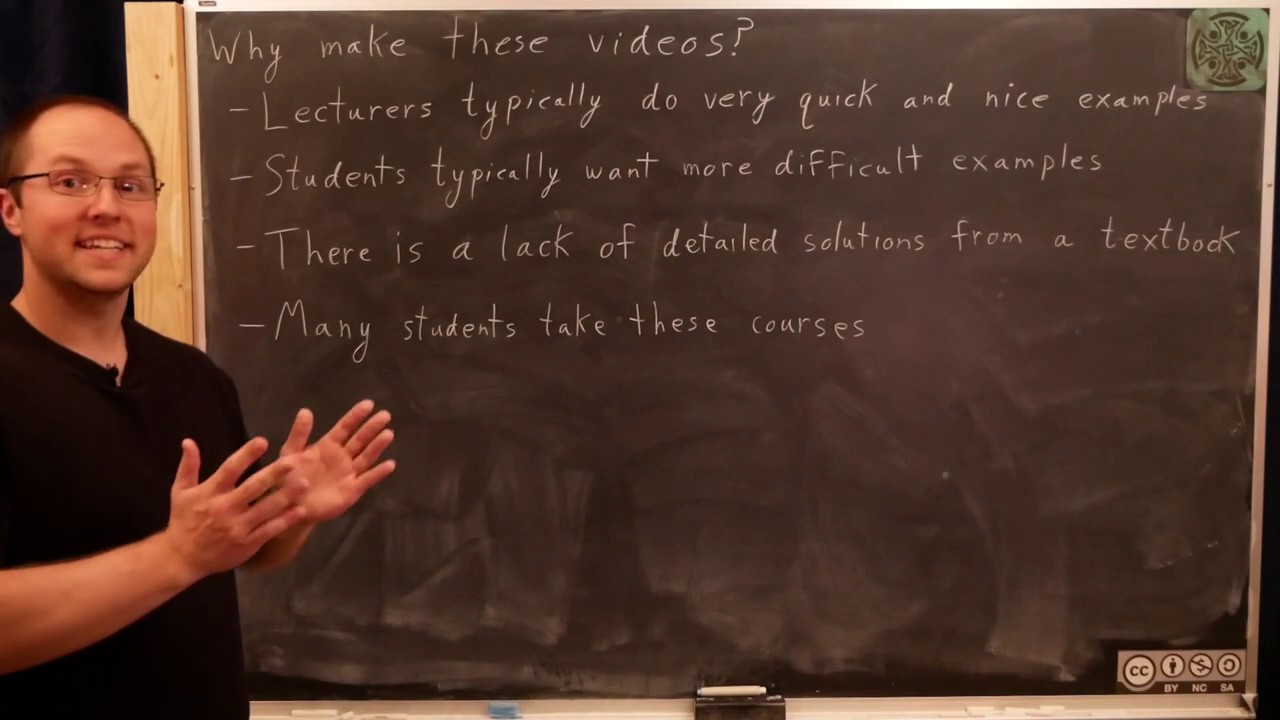 Why make these videos?
- Lecturers typically do very quick and nice examples
- Students typically want more difficult examples
- There is a lack of detailed solutions from a textbook
- Many students take these courses
cc
BY NC SA